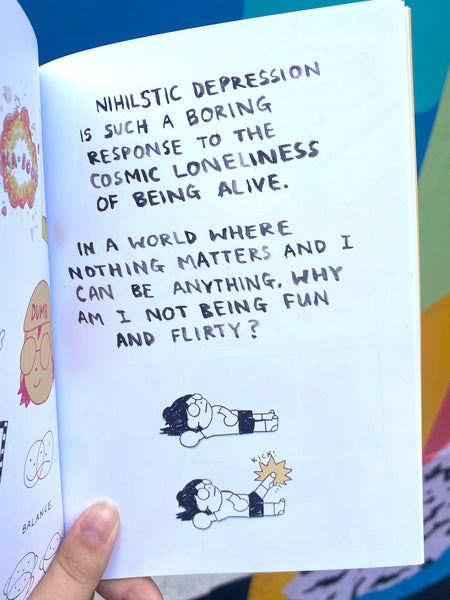 NIHILSTIC DEPRESSION
IS SUCH A BORING
RESPONSE TO THE
COSMIC LONELINESS
OF BEING ALIVE.
IN A WORLD WHERE
NOTHING MATTERS AND I
CAN BE ANYTHING. WHY
AM I NOT BEING FUN
AND FLIRTY?
KICK!
DUMB
BALANCE